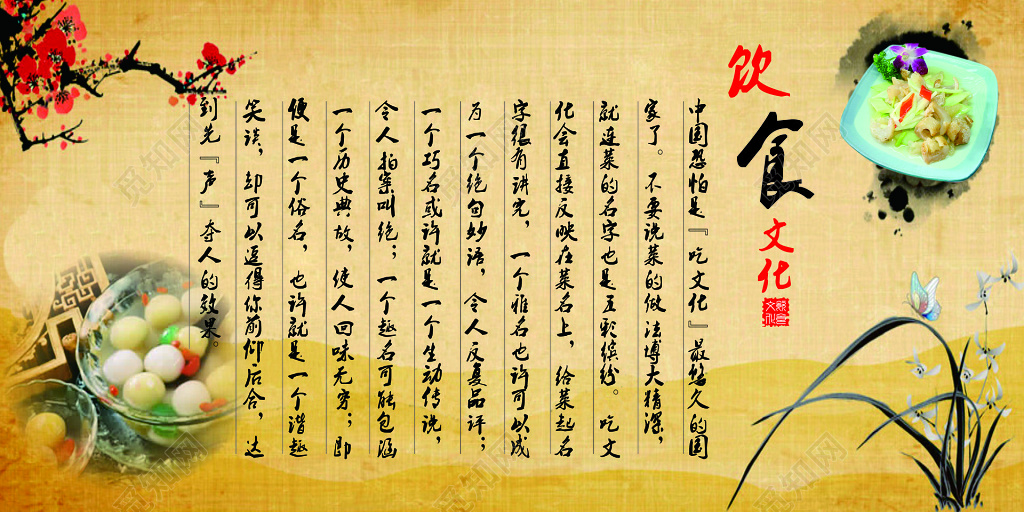 饮食文化
中国恐怕是『吃文化』最悠久的国
家了。不要说菜的做法博大精深，
就连菜的名字也是五彩缤纷。吃文
化会直接反映在菜名上，给菜起名
字很有讲究，一个雅名也许可以成
为一个绝句妙语，令人反复品评；
一个巧名或许就是一个生动传说，
令人拍案叫绝；一个趣名可能包涵
一个历史典故，使人回味无穷；即
便是一个俗名，也许就是一个谐趣
笑谈，却可以逗得你前仰后合，达
到先『声』夺人的效果。
觅知网